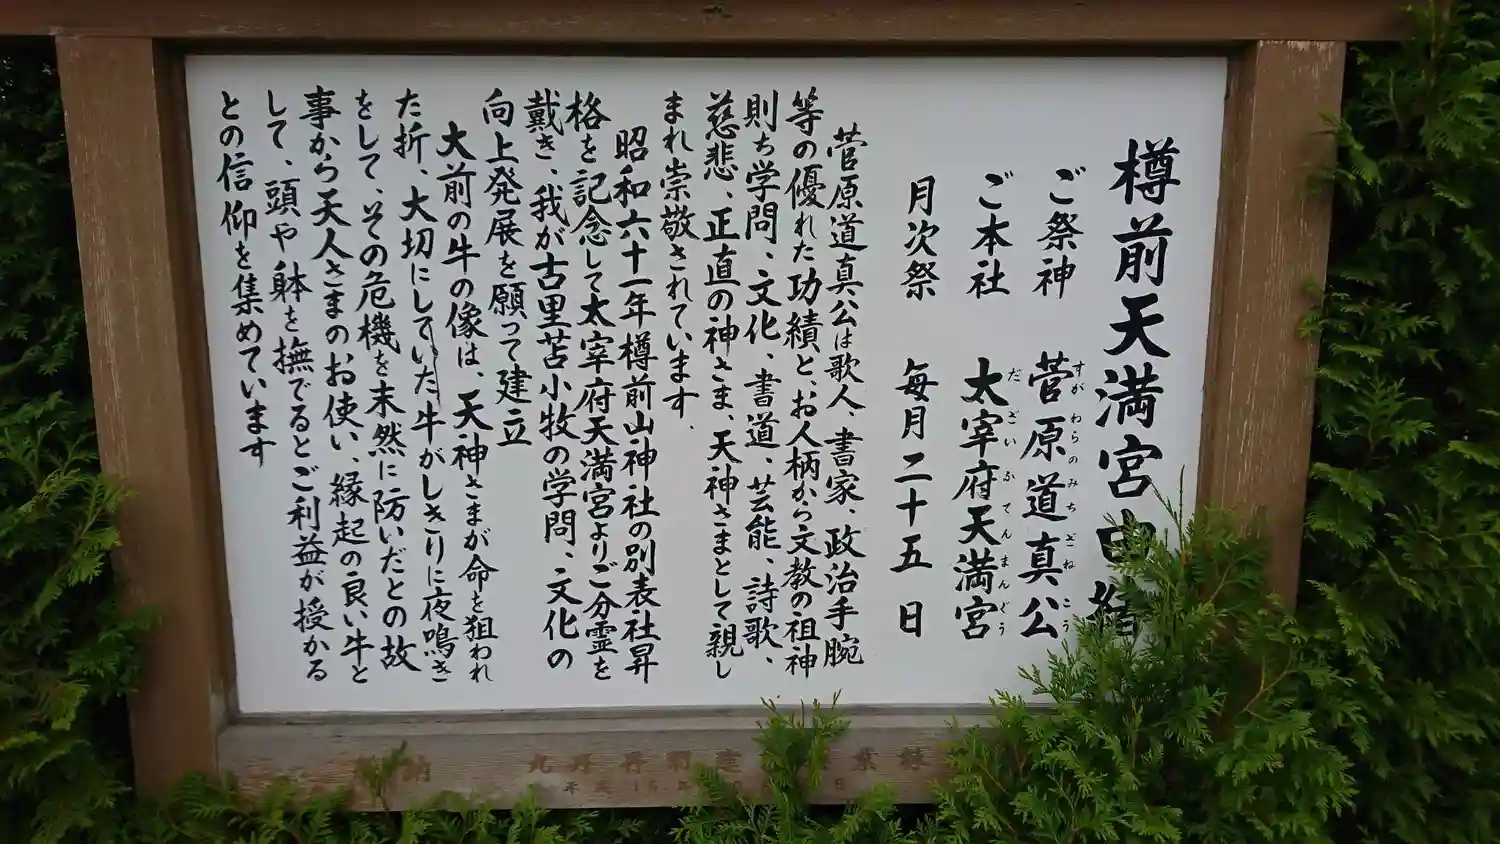 樽前天満宮由緒
ご祭神 菅原道真公
すがわらのみちざねこう
ご本社 太宰府天満宮
だざいふてんまんぐう
月次祭 毎月二十五日
菅原道真公は歌人、書家、政治手腕
等の優れた功績と、お人柄から文教の祖神
則ち学問、文化、書道、芸能、詩歌、
慈悲、正直の神さま、天神さまとして親し
まれ崇敬されています。
昭和六十一年樽前山神社の別表社昇
格を記念して太宰府天満宮よりご分霊を
戴き、我が古里苫小牧の学問、文化の
向上発展を願って建立
大前の牛の像は、天神さまが命を狙われ
た折、大切にしていた牛がしきりに夜鳴き
をして、その危機を末然に防いだとの故
事から天人さまのお使い、縁起の良い牛と
して、頭や躰を撫でるとご利益が授かる
との信仰を集めています
納